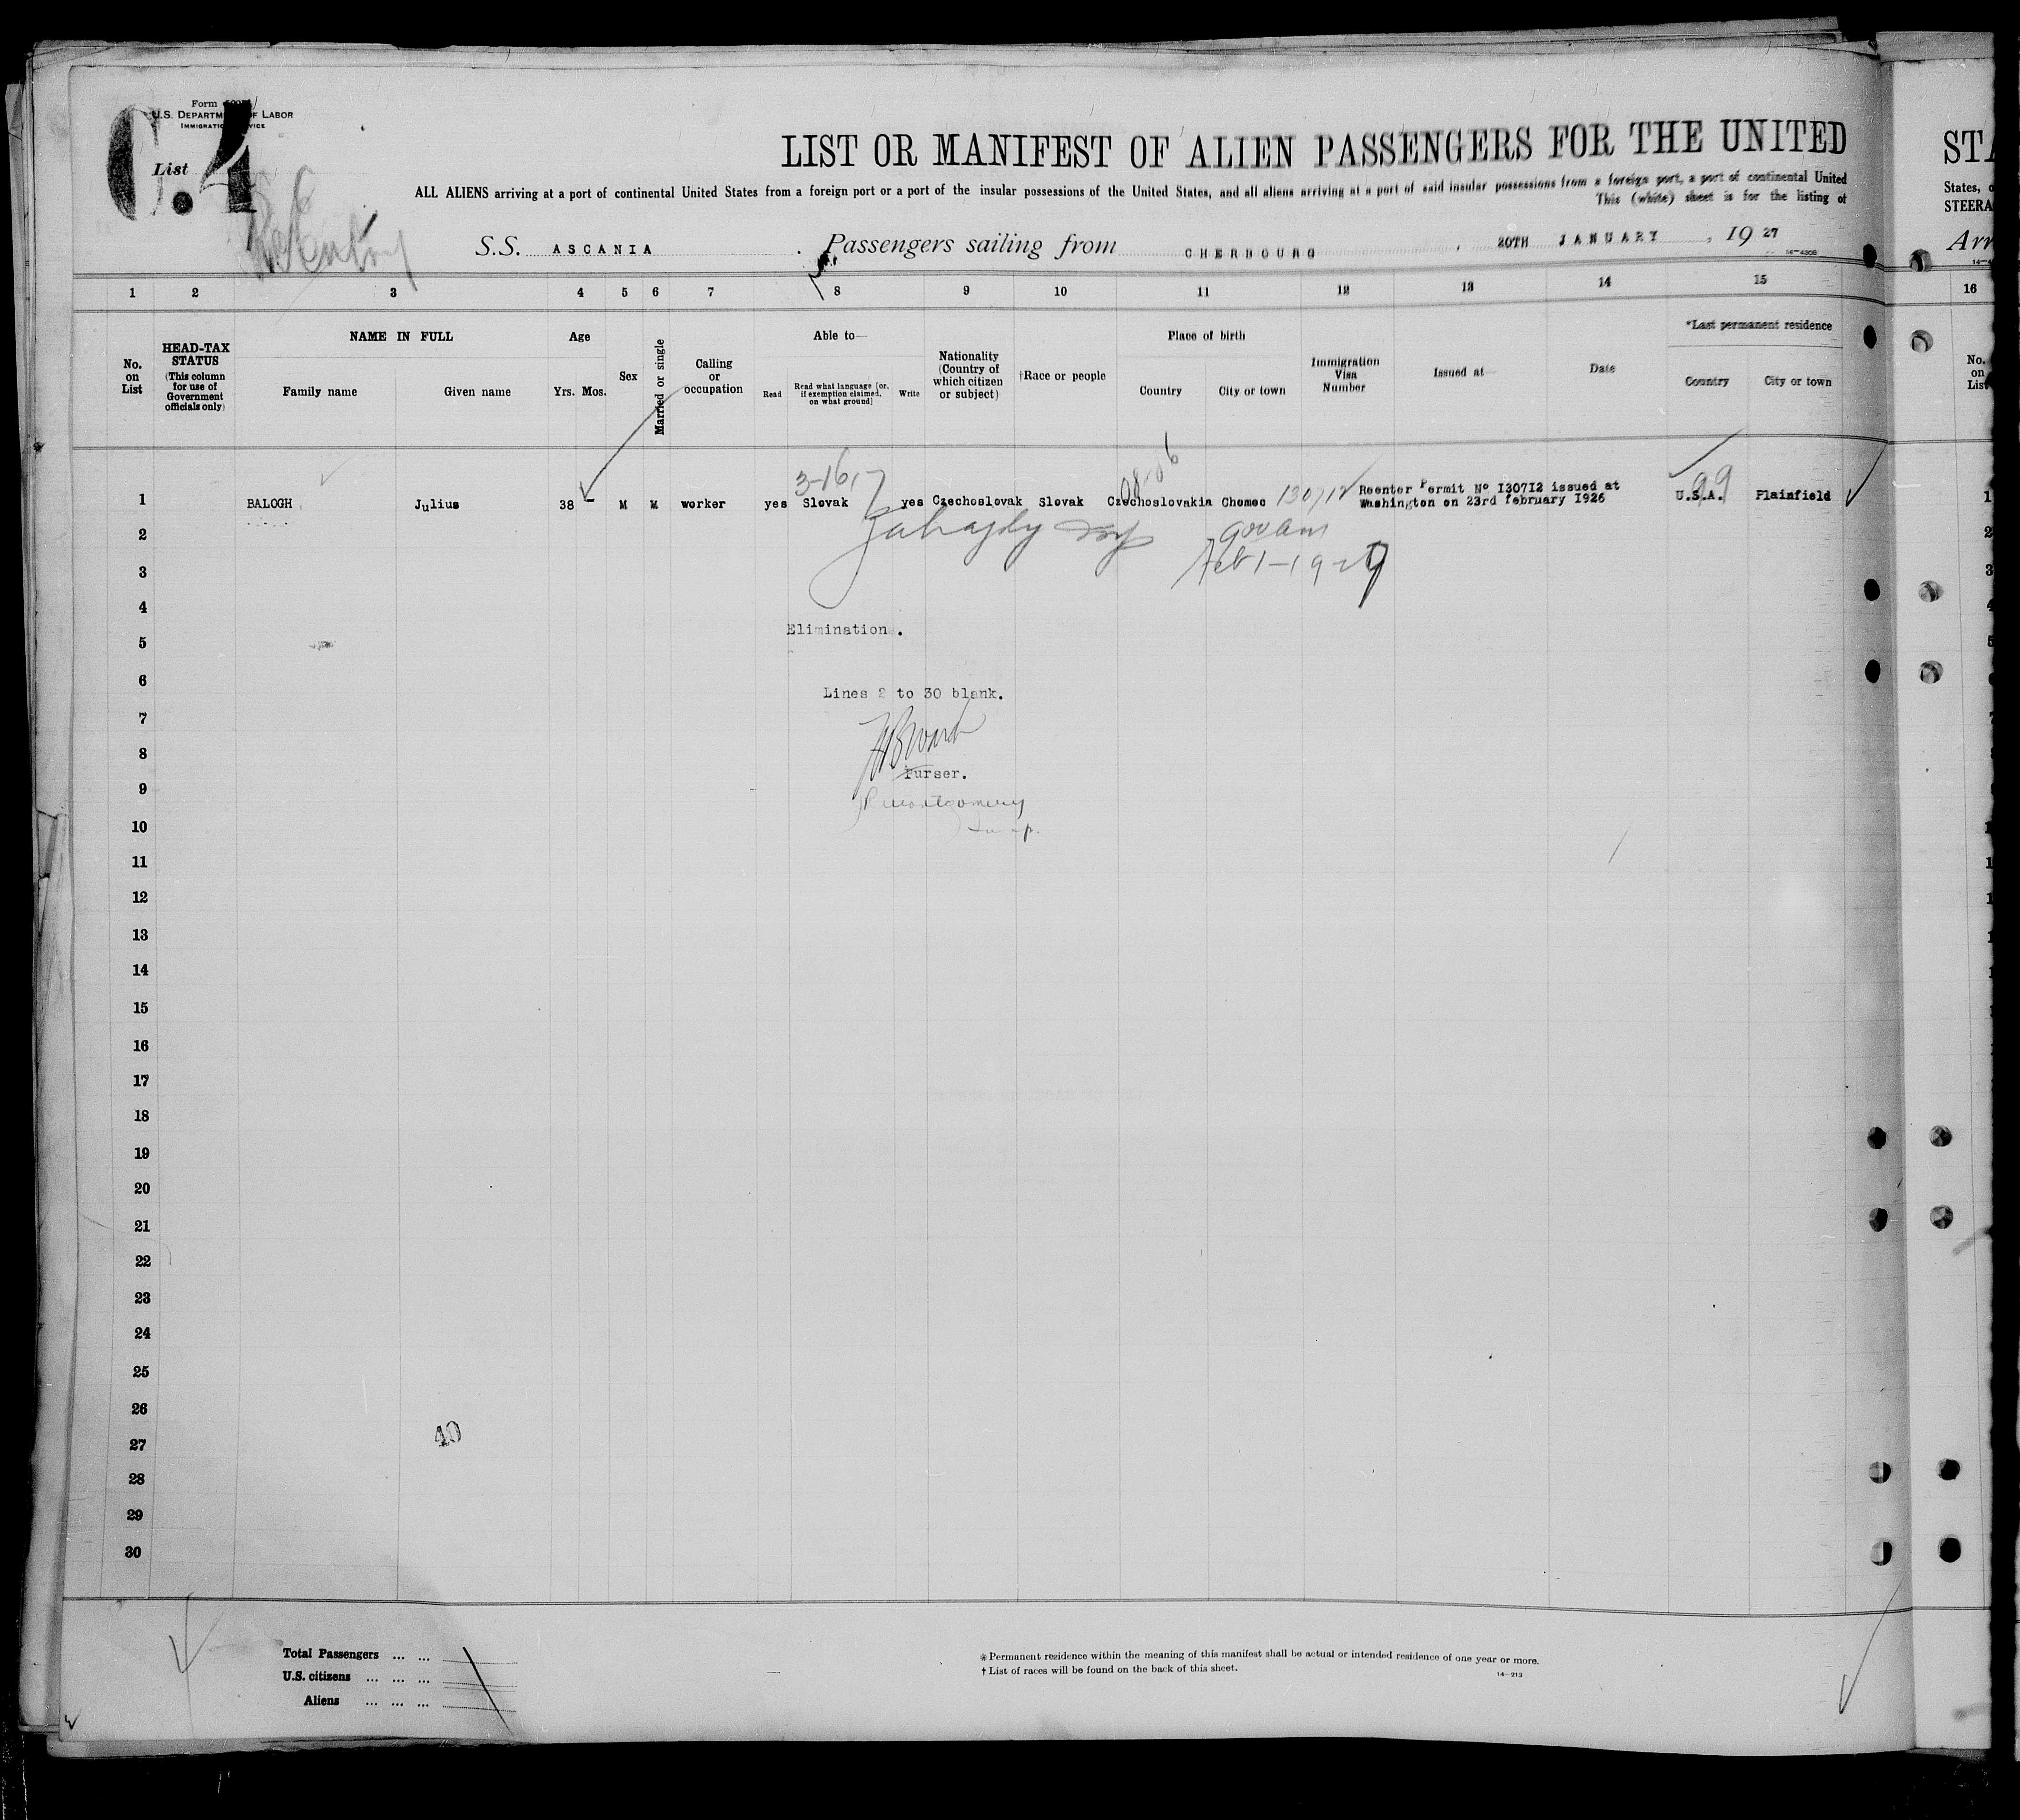 Form
U.S. DEPARTMENT OF LABOR
IMMIGRATION SERVICE
List
C.4
LIST OR MANIFEST OF ALIEN PASSENGERS FOR THE UNITED
ALL ALIENS arriving at a port of continental United States from a foreign port or a port of the insular possessions of the United States, and all aliens arriving at a port of said insular possessions from a foreign port, a port of continental United
This (white) sheet is for the listing of
S.S. ASCANIA . Passengers sailing from CHERBOURG , 20TH JANUARY , 19 27
14-4308
1 2 3 4 5 6 7 8 9 10 11 12 13 14 15
No. on List
HEAD-TAX STATUS
(This column for use of Government officials only)
NAME IN FULL
Family name Given name
Age
Yrs. Mos.
Sex
Married or single
Calling or occupation
Able to—
Read
Read what language [or, if exemption claimed, on what ground]
Write
Nationality (Country of which citizen or subject)
†Race or people
Place of birth
Country City or town
Immigration Visa Number
Issued at—
Date
*Last permanent residence
Country City or town
3-1617
08-06
99
1 BALOGH Julius 38 - M M worker yes Slovak yes Czechoslovak Slovak Czechoslovakia Chomec 130712 Reenter Permit No 130712 issued at U.S.A. Plainfield
Washington on 23rd february 1926
2
Feb 1-1927
3
4
Elimination.
5
6
Lines 2 to 30 blank.
7
8
Purser.
9
Montgomery
10
11
12
13
14
15
16
17
18
19
20
21
22
23
24
25
26
40
27
28
29
30
Total Passengers ... ...
U.S. citizens ... ... ...
Aliens ... ... ...
* Permanent residence within the meaning of this manifest shall be actual or intended residence of one year or more.
† List of races will be found on the back of this sheet.
14-213
STA
States, o
STEERA
Arr
16
No. on List
1
2
3